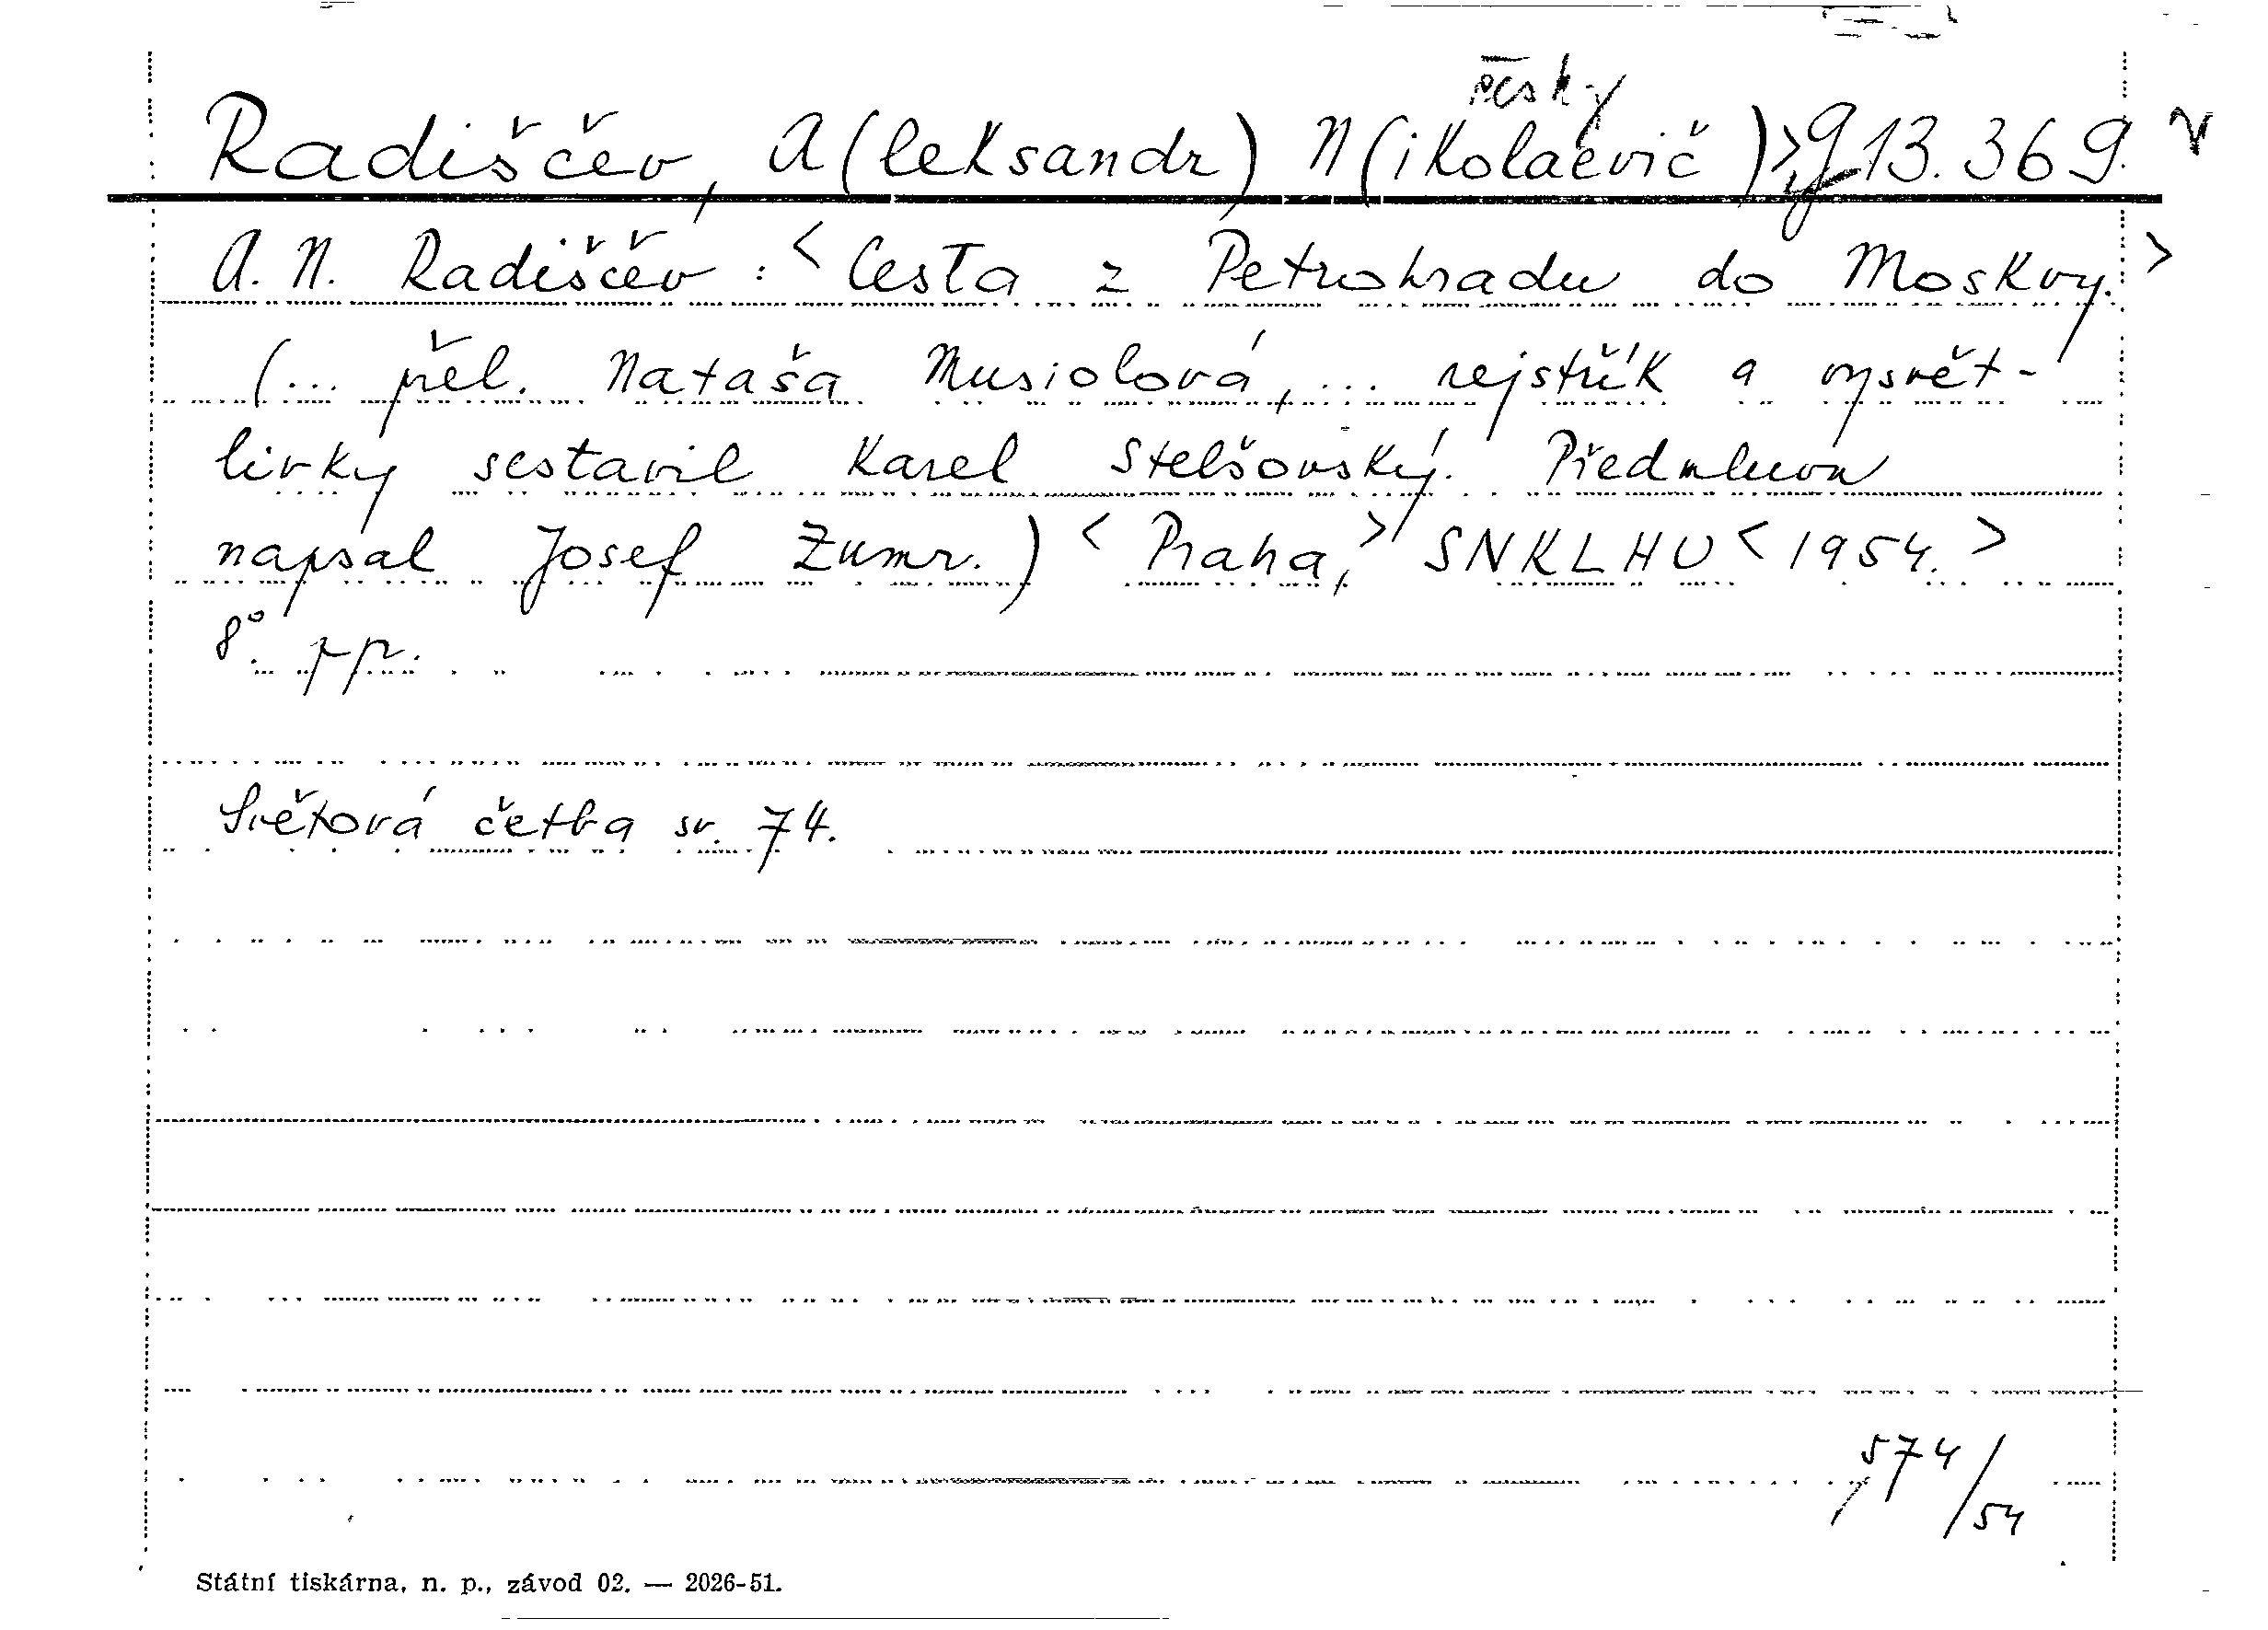 česky
Radiščev, A(leksandr) N(ikolaevič)> g 13.369.
A. N. Radiščev: <Cesta z Petrohradu do Moskvy.>
(... přel. Nataša Musiolová, ... rejstřík a vysvět-
livky sestavil Karel Stelšovský. Předmluva
napsal Josef Zumr.) <Praha,> SNKLHU <1954.>
8°. pp.
Světová četba sv. 74.
574/54
Státní tiskárna, n. p., závod 02. — 2026-51.